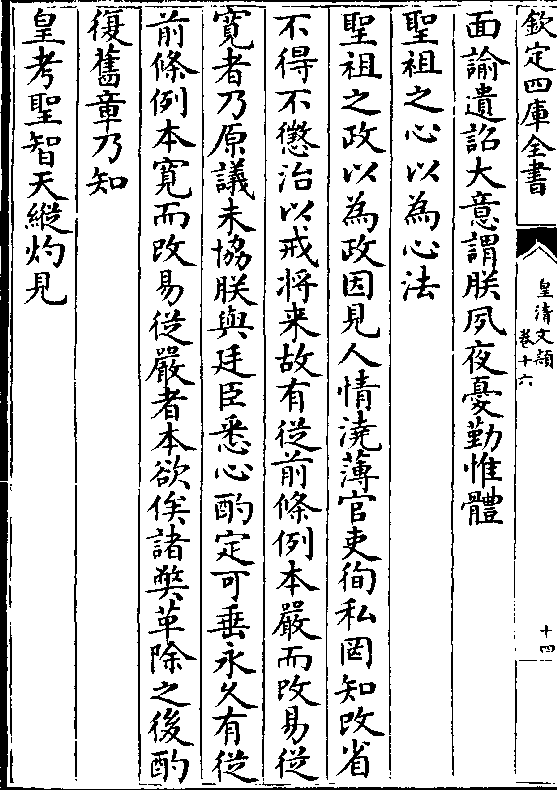 欽定四庫全書
皇清文穎
卷十六
十四
面諭遺詔大意謂朕夙夜憂勤惟體
聖祖之心以為心法
聖祖之政以為政因見人情澆薄官吏徇私罔知改省
不得不懲治以戒將来故有從前條例本嚴而改易從
寛者乃原議未協朕與廷臣悉心酌定可垂永久有從
前條例本寛而改易從嚴者本欲俟諸弊革除之後酌
復舊章乃知
皇考聖智天縱灼見